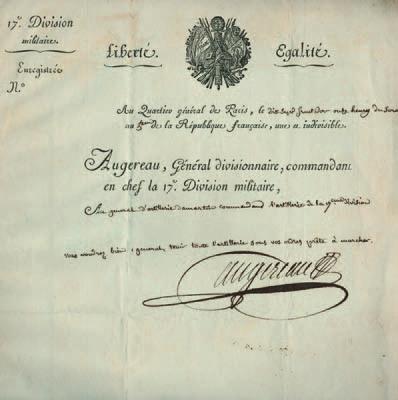 17.e Division
militaire.
Liberté.
Egalité.
Enregistrée
N.o
Au Quartier général de Paris, le dix sept fructidor onze heures du soir
au 5me de la République française, une et indivisible.
Augereau, Général divisionnaire, commandant
en chef la 17.e Division militaire,
Au general d'artillerie commandant l'artillerie de la 17eme division
vous voudrez bien, general, tenir toute l'artillerie sous vos ordres prête à marcher.
augereau